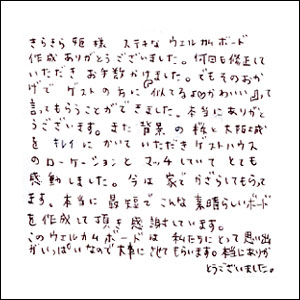 きらきら姫様 ステキなウェルカムボード
作成ありがとうございました。何回も修正して
いただき お手数かけました。でもそのおか
げで ゲストの方に 似てる♪かわいい♥って
言ってもらうことができました。本当にありがと
うございます。また 背景の 桜と大阪城
を キレイに かいて いただき ゲストハウス
のロケーションと マッチしていて とても
感動しました。今は 家で かざらしてもらって
ます。本当に 最短で こんな素晴らしいボード
を作成して頂き感謝しています。
このウェルカムボードは 私たちにとって 思い出
がいっぱいなので大事にさせてもらいます。本当にありが
とうございました。